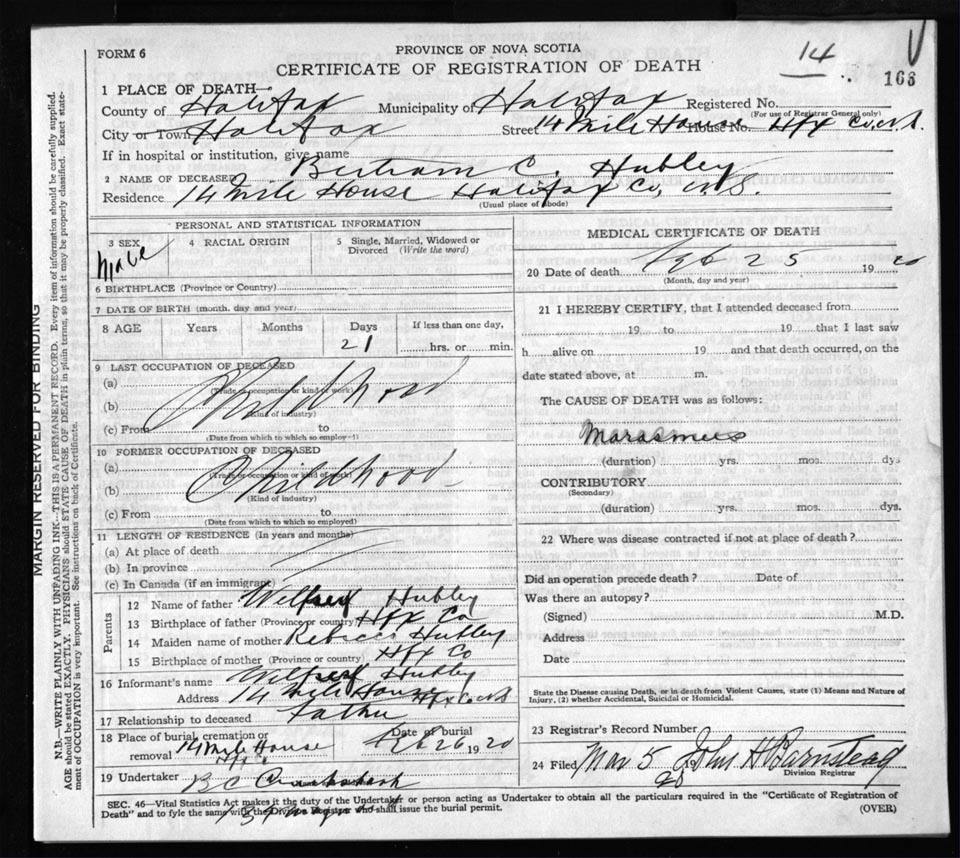 FORM 6
PROVINCE OF NOVA SCOTIA
CERTIFICATE OF REGISTRATION OF DEATH
14
163
1 PLACE OF DEATH—
County of Halifax Municipality of Halifax Registered No.
(For use of Registrar General only)
City or Town Halifax Street 14 Mile House House No. Hfx Co, N.S.
If in hospital or institution, give name
2 NAME OF DECEASED Bertram C. Hubley
Residence 14 Mile House Halifax Co, N.S.
(Usual place of abode)
PERSONAL AND STATISTICAL INFORMATION
3 SEX Male
4 RACIAL ORIGIN
5 Single, Married, Widowed or Divorced (Write the word)
6 BIRTHPLACE (Province or Country)
7 DATE OF BIRTH (month, day and year)
8 AGE Years Months Days 21
If less than one day,
hrs. or min.
9 LAST OCCUPATION OF DECEASED
(a) Childhood
(Trade, occupation or kind of work)
(b)
(Kind of industry)
(c) From to
(Date from which to which so employed)
10 FORMER OCCUPATION OF DECEASED
(a) Childhood
(Trade, occupation or kind of work)
(b)
(Kind of industry)
(c) From to
(Date from which to which so employed)
11 LENGTH OF RESIDENCE (In years and months)
(a) At place of death
(b) In province
(c) In Canada (if an immigrant)
Parents
12 Name of father Wilfred Hubley
13 Birthplace of father (Province or country) Hfx Co
14 Maiden name of mother Rebecca Hubley
15 Birthplace of mother (Province or country) Hfx Co
16 Informant's name Wilfred Hubley
Address 14 Mile House Hfx Co N.S.
17 Relationship to deceased Father
18 Place of burial, cremation or removal 14 Mile House Hfx Co
Date of burial Feb 26 1920
19 Undertaker B C
MEDICAL CERTIFICATE OF DEATH
20 Date of death Feb 25 1920
(Month, day and year)
21 I HEREBY CERTIFY, that I attended deceased from
19 to 19 that I last saw
h alive on 19 and that death occurred, on the
date stated above, at m.
The CAUSE OF DEATH was as follows:
Marasmus
(duration) yrs. mos. dys
CONTRIBUTORY
(Secondary)
(duration) yrs. mos. dys.
22 Where was disease contracted if not at place of death?
Did an operation precede death? Date of
Was there an autopsy?
(Signed) M.D.
Address
Date
State the Disease causing Death, or in death from Violent Causes, state (1) Means and Nature of
Injury, (2) whether Accidental, Suicidal or Homicidal.
23 Registrar's Record Number
24 Filed Mar 5 20 John H Barnstead
Division Registrar
SEC. 46—Vital Statistics Act makes it the duty of the Undertaker or person acting as Undertaker to obtain all the particulars required in the "Certificate of Registration of
Death" and to fyle the same with the Division Registrar who shall issue the burial permit.
(OVER)
MARGIN RESERVED FOR BINDING
N.B.—WRITE PLAINLY WITH UNFADING INK—THIS IS A PERMANENT RECORD. Every item of information should be carefully supplied.
AGE should be stated EXACTLY. PHYSICIANS should STATE CAUSE OF DEATH in plain terms, so that it may be properly classified. Exact statement of OCCUPATION is very important. See instructions on back of Certificate.